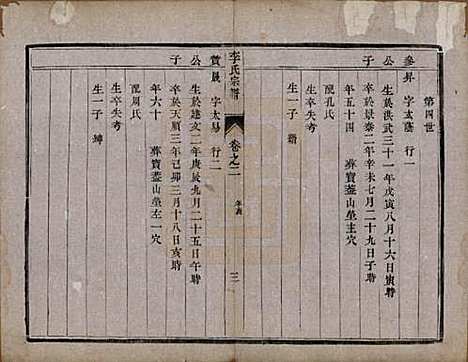 第四世
參昇 字太蔭 行一
公 生於洪武三十一年戊寅八月十六日寅時
子 卒於景泰二年辛未七月二十九日子時
年五十四 葬寶蓋山塋主穴
配孔氏
生卒失考
生一子
李氏宗譜 卷之二 年表 三
贊晟 字太易 行二
公 生於建文二年庚辰九月二十五日午時
子 卒於天順三年己卯三月十八日亥時
年六十 葬寶蓋山塋左一穴
配周氏
生卒失考
生一子